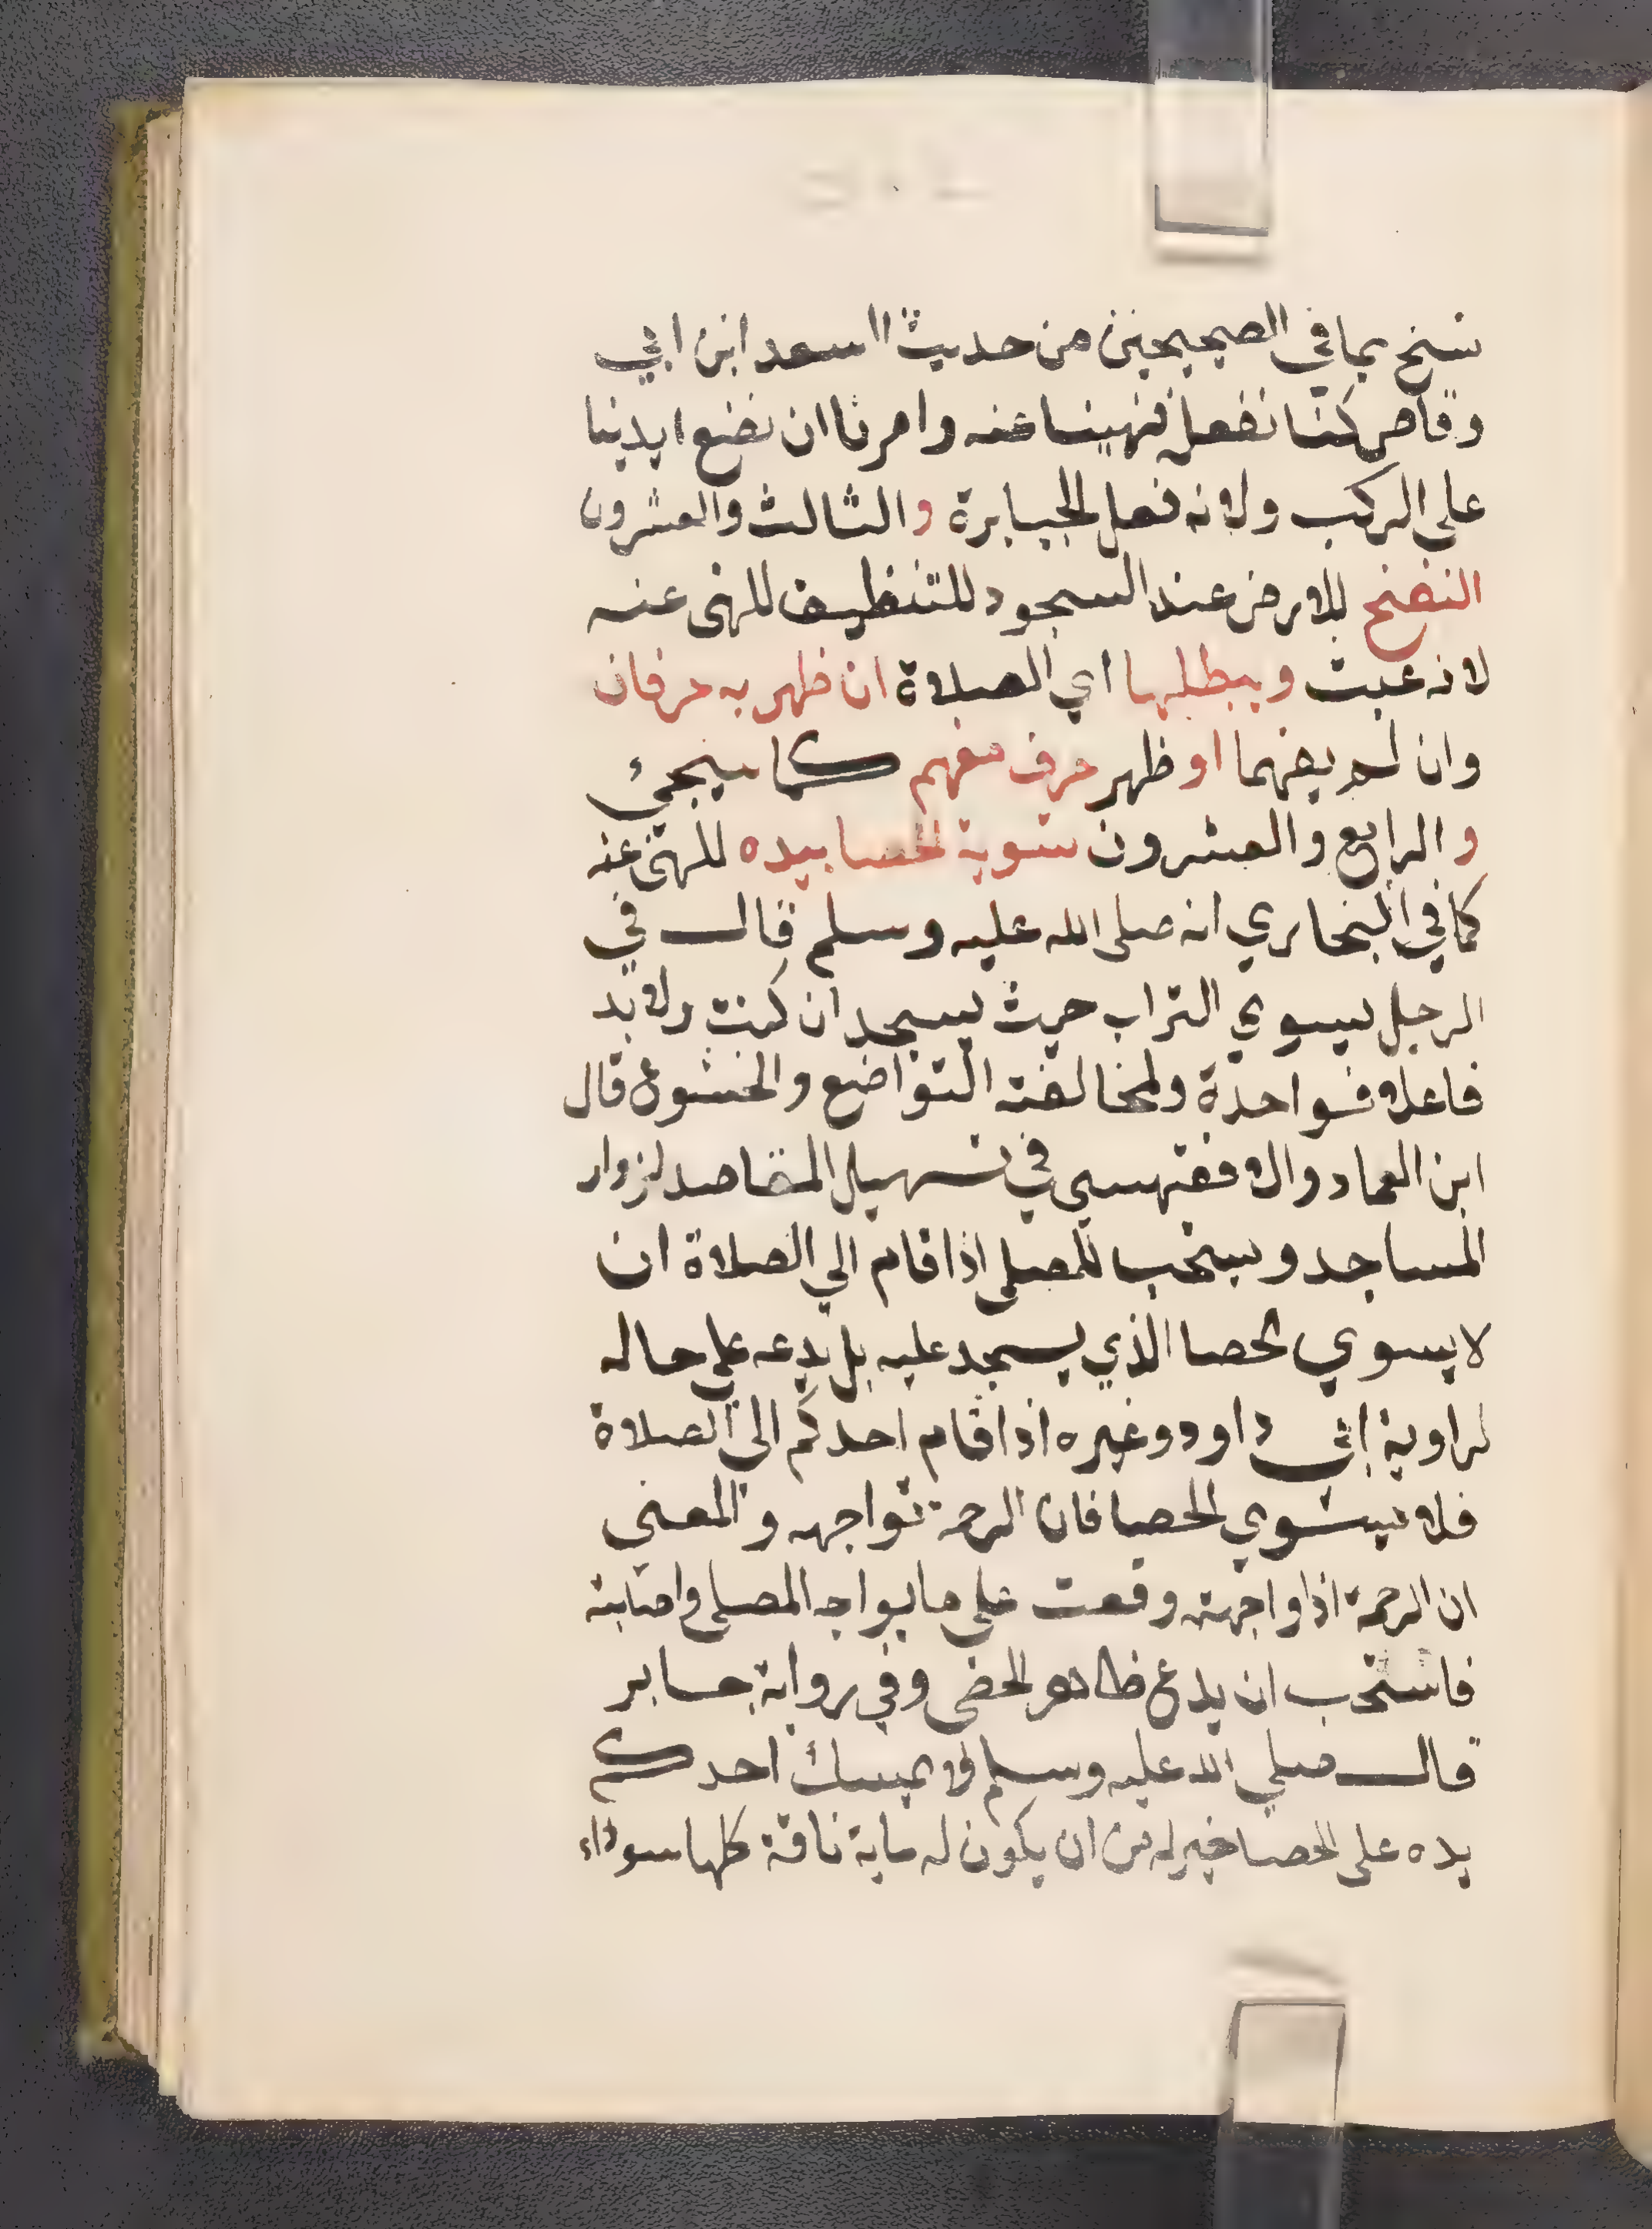 نسخ بما في الصحيحين من حديث اسعد ابن ابي
وقاص كنا نفعل فنهينا عنه وامرنا ان نضع ايدينا
على الركب ولانه فعل الجبابرة والثالث والعشرون
النفخ للارض عند السجود للتنظيف للنهى عنه
لانه عبث ويبطلها اي الصلاة ان ظهر به حرفان
وان لم يفهما او ظهر حرف مفهم كما سيجئ
والرابع والعشرون تسوية الحصا بيده للنهى عنه
كما في البخاري انه صلى الله عليه وسلم قال في
الرجل يسوي التراب حيث يسجد ان كنت ولا بد
فاعلا فواحدة ولمخالفته التواضع والخشوع قال
ابن العماد والاقفهسي في تسهيل المقاصد لزوار
المساجد ويستحب للمصلي اذا قام الي الصلاة ان
لا يسوي الحصا الذي يسجد عليه بل يدعه علي حاله
لراوية ابي داود وغيره اذا قام احدكم الى الصلاة
فلا يسوي الحصا فان الرحمة تواجهه والمعنى
ان الرحمة اذا واجهته وقعت علي ما يواجه المصلي واصابته
فاستحب ان يدع ظاهر الحصى وفي رواية جابر
قال صلي الله عليه وسلم لان يمسك احدكم
يده على الحصا خير له من ان يكون له ماية ناقة كلها سوداء